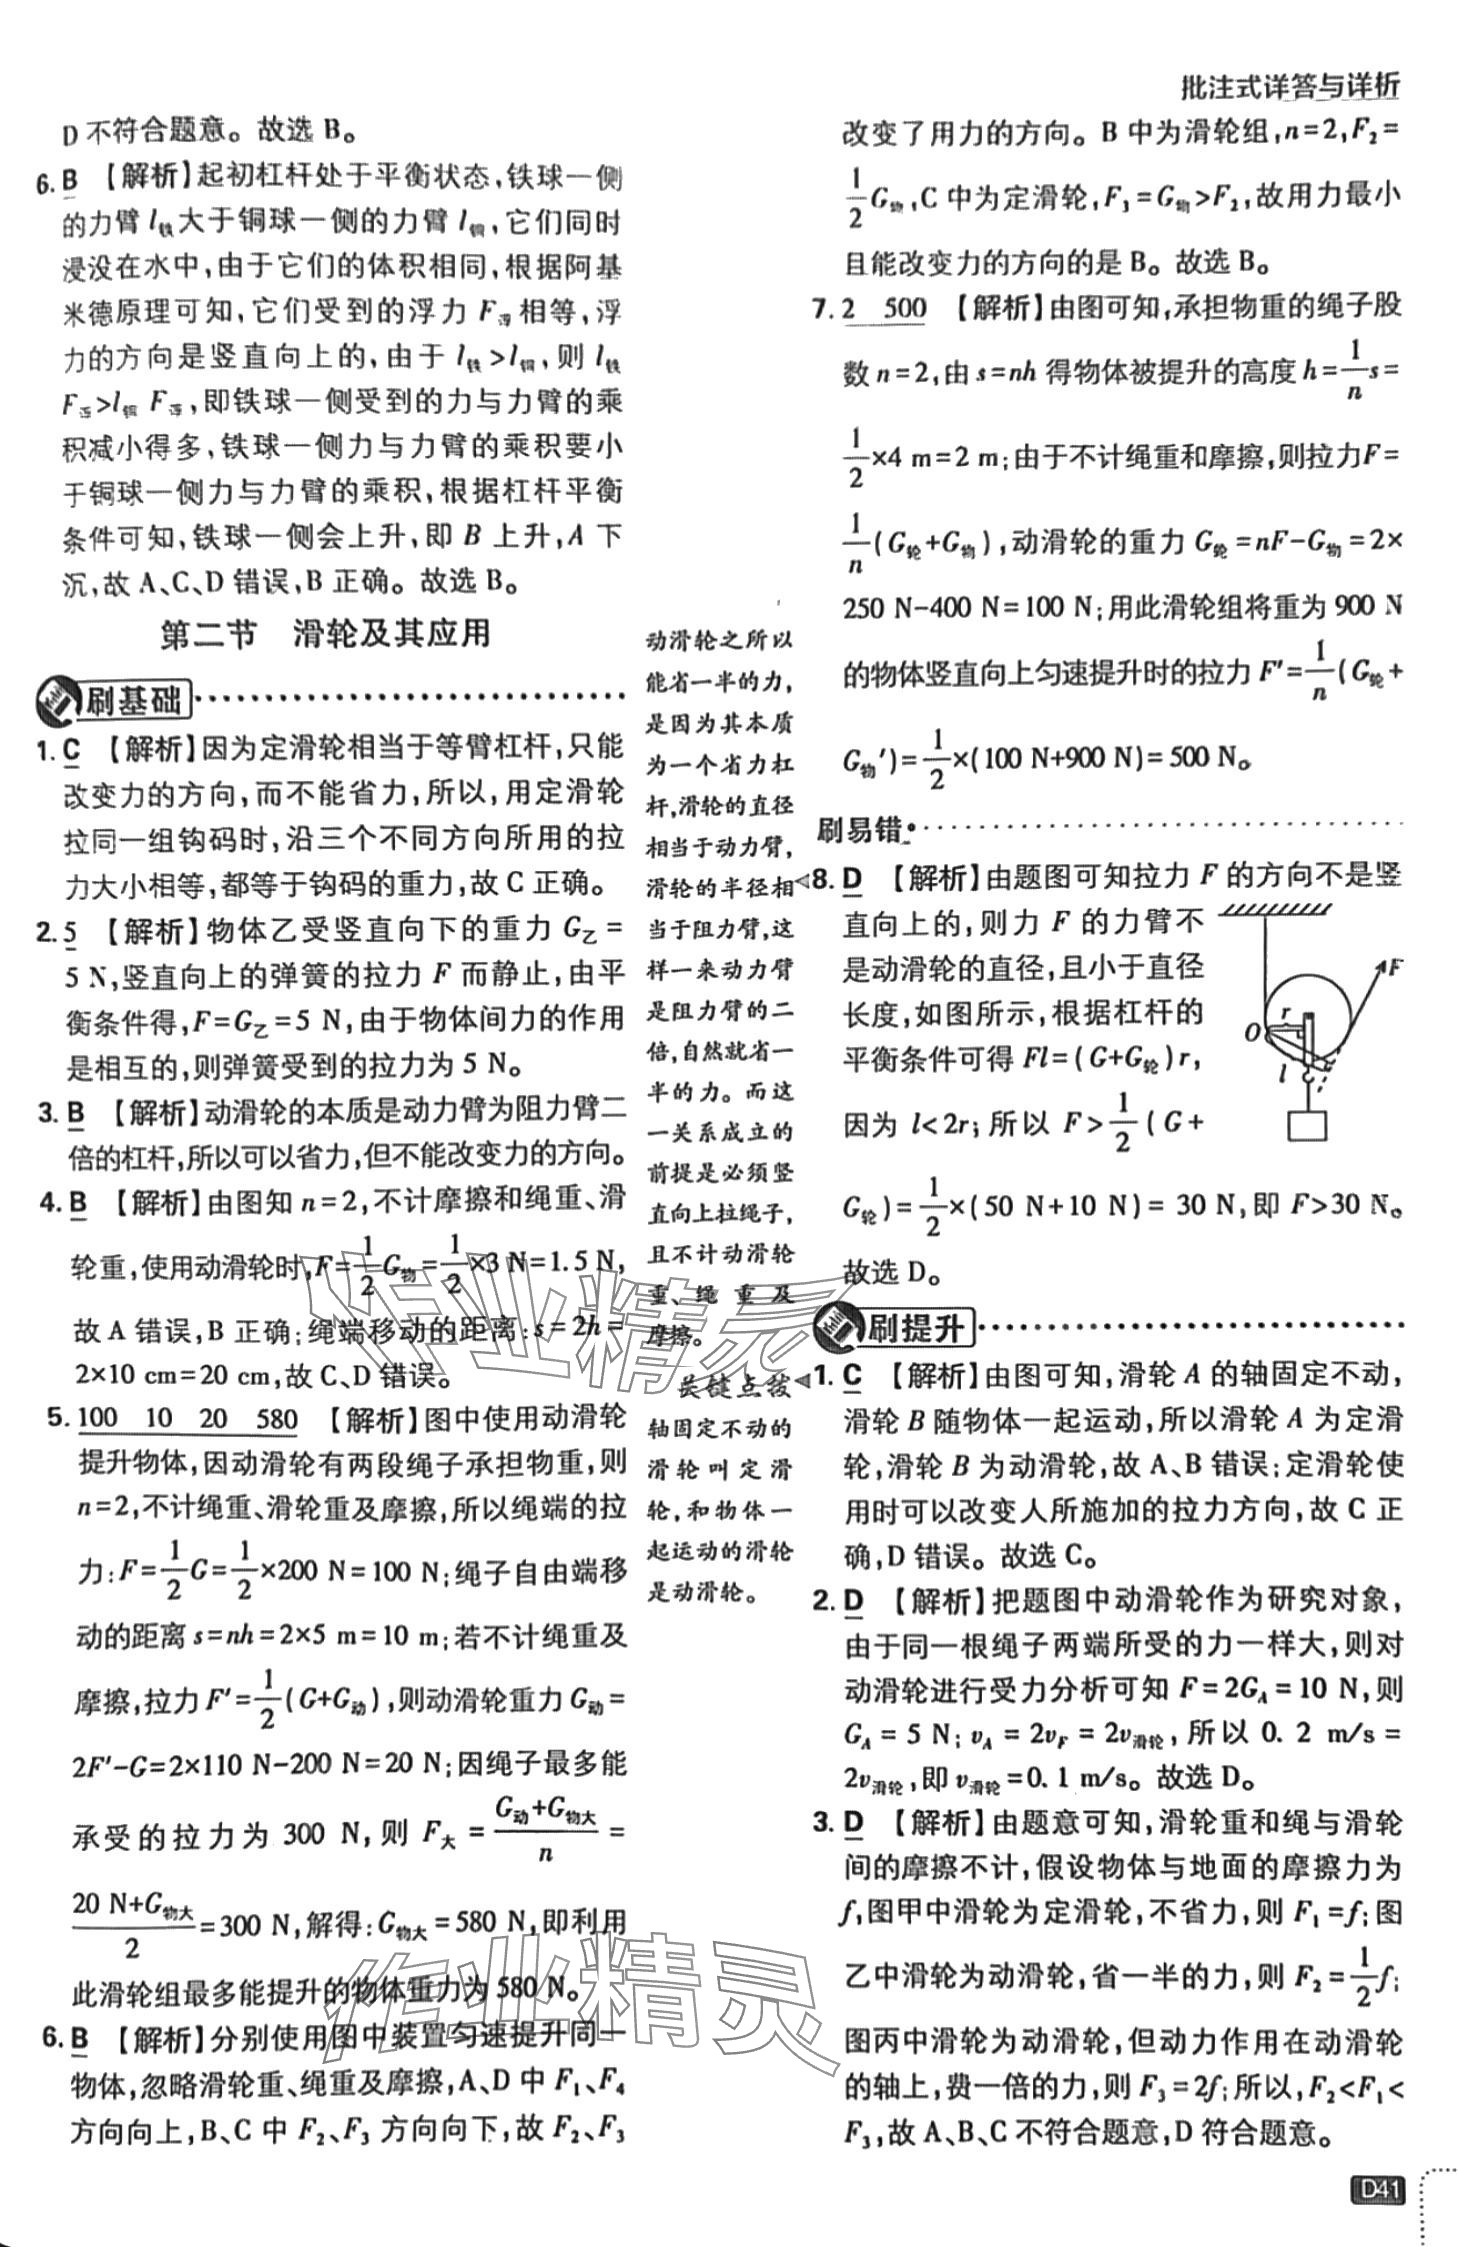 批注式详答与详析
D 不符合题意。故选 B。
6. B 【解析】起初杠杆处于平衡状态,铁球一侧
的力臂 l铁大于铜球一侧的力臂 l铜,它们同时
浸没在水中,由于它们的体积相同,根据阿基
米德原理可知,它们受到的浮力 F浮相等,浮
力的方向是竖直向上的,由于 l铁>l铜,则 l铁
F浮>l铜 F浮,即铁球一侧受到的力与力臂的乘
积减小得多,铁球一侧力与力臂的乘积要小
于铜球一侧力与力臂的乘积,根据杠杆平衡
条件可知,铁球一侧会上升,即 B 上升,A 下
沉,故 A、C、D 错误,B 正确。故选 B。
第二节 滑轮及其应用
刷基础
1. C 【解析】因为定滑轮相当于等臂杠杆,只能
改变力的方向,而不能省力,所以,用定滑轮
拉同一组钩码时,沿三个不同方向所用的拉
力大小相等,都等于钩码的重力,故 C 正确。
2. 5 【解析】物体乙受竖直向下的重力 G乙=
5 N,竖直向上的弹簧的拉力 F 而静止,由平
衡条件得,F=G乙=5 N,由于物体间力的作用
是相互的,则弹簧受到的拉力为 5 N。
3. B 【解析】动滑轮的本质是动力臂为阻力臂二
倍的杠杆,所以可以省力,但不能改变力的方向。
4. B 【解析】由图知 n=2,不计摩擦和绳重、滑
轮重,使用动滑轮时,F=1/2G物=1/2×3 N=1.5 N,
故 A 错误,B 正确;绳端移动的距离:s=2h=
2×10 cm=20 cm,故 C、D 错误。
5. 100 10 20 580 【解析】图中使用动滑轮
提升物体,因动滑轮有两段绳子承担物重,则
n=2,不计绳重、滑轮重及摩擦,所以绳端的拉
力:F=1/2G=1/2×200 N=100 N;绳子自由端移
动的距离 s=nh=2×5 m=10 m;若不计绳重及
摩擦,拉力 F′=1/2(G+G动),则动滑轮重力 G动=
2F′-G=2×110 N-200 N=20 N;因绳子最多能
承受的拉力为 300 N,则 F大=(G动+G物大)/n=
(20 N+G物大)/2=300 N,解得:G物大=580 N,即利用
此滑轮组最多能提升的物体重力为 580 N。
6. B 【解析】分别使用图中装置匀速提升同一
物体,忽略滑轮重、绳重及摩擦,A、D 中 F1、F4
方向向上,B、C 中 F2、F3 方向向下,故 F2、F3
动滑轮之所以
能省一半的力,
是因为其本质
为一个省力杠
杆,滑轮的直径
相当于动力臂,
滑轮的半径相
当于阻力臂,这
样一来动力臂
是阻力臂的二
倍,自然就省一
半的力。而这
一关系成立的
前提是必须竖
直向上拉绳子,
且不计动滑轮
重、绳重及
摩擦。
关键点拨
轴固定不动的
滑轮叫定滑
轮,和物体一
起运动的滑轮
是动滑轮。
改变了用力的方向。B 中为滑轮组,n=2,F2=
1/2G物,C 中为定滑轮,F3=G物>F2,故用力最小
且能改变力的方向的是 B。故选 B。
7. 2 500 【解析】由图可知,承担物重的绳子股
数 n=2,由 s=nh 得物体被提升的高度 h=1/n s=
1/2×4 m=2 m;由于不计绳重和摩擦,则拉力F=
1/n(G轮+G物),动滑轮的重力 G轮=nF-G物=2×
250 N-400 N=100 N;用此滑轮组将重为 900 N
的物体竖直向上匀速提升时的拉力 F′=1/n(G轮+
G物′)=1/2×(100 N+900 N)=500 N。
刷易错
8. D 【解析】由题图可知拉力 F 的方向不是竖
直向上的,则力 F 的力臂不
是动滑轮的直径,且小于直径
长度,如图所示,根据杠杆的
平衡条件可得 Fl=(G+G轮)r,
因为 l<2r;所以 F>1/2(G+
G轮)=1/2×(50 N+10 N)=30 N,即 F>30 N。
故选 D。
F
r
O
l
刷提升
1. C 【解析】由图可知,滑轮 A 的轴固定不动,
滑轮 B 随物体一起运动,所以滑轮 A 为定滑
轮,滑轮 B 为动滑轮,故 A、B 错误;定滑轮使
用时可以改变人所施加的拉力方向,故 C 正
确,D 错误。故选 C。
2. D 【解析】把题图中动滑轮作为研究对象,
由于同一根绳子两端所受的力一样大,则对
动滑轮进行受力分析可知 F=2GA=10 N,则
GA=5 N;vA=2vF=2v滑轮,所以 0.2 m/s=
2v滑轮,即 v滑轮=0.1 m/s。故选 D。
3. D 【解析】由题意可知,滑轮重和绳与滑轮
间的摩擦不计,假设物体与地面的摩擦力为
f,图甲中滑轮为定滑轮,不省力,则 F1=f;图
乙中滑轮为动滑轮,省一半的力,则 F2=1/2f;
图丙中滑轮为动滑轮,但动力作用在动滑轮
的轴上,费一倍的力,则 F3=2f;所以,F2<F1<
F3,故 A、B、C 不符合题意,D 符合题意。
D41
作业精灵
作业精灵